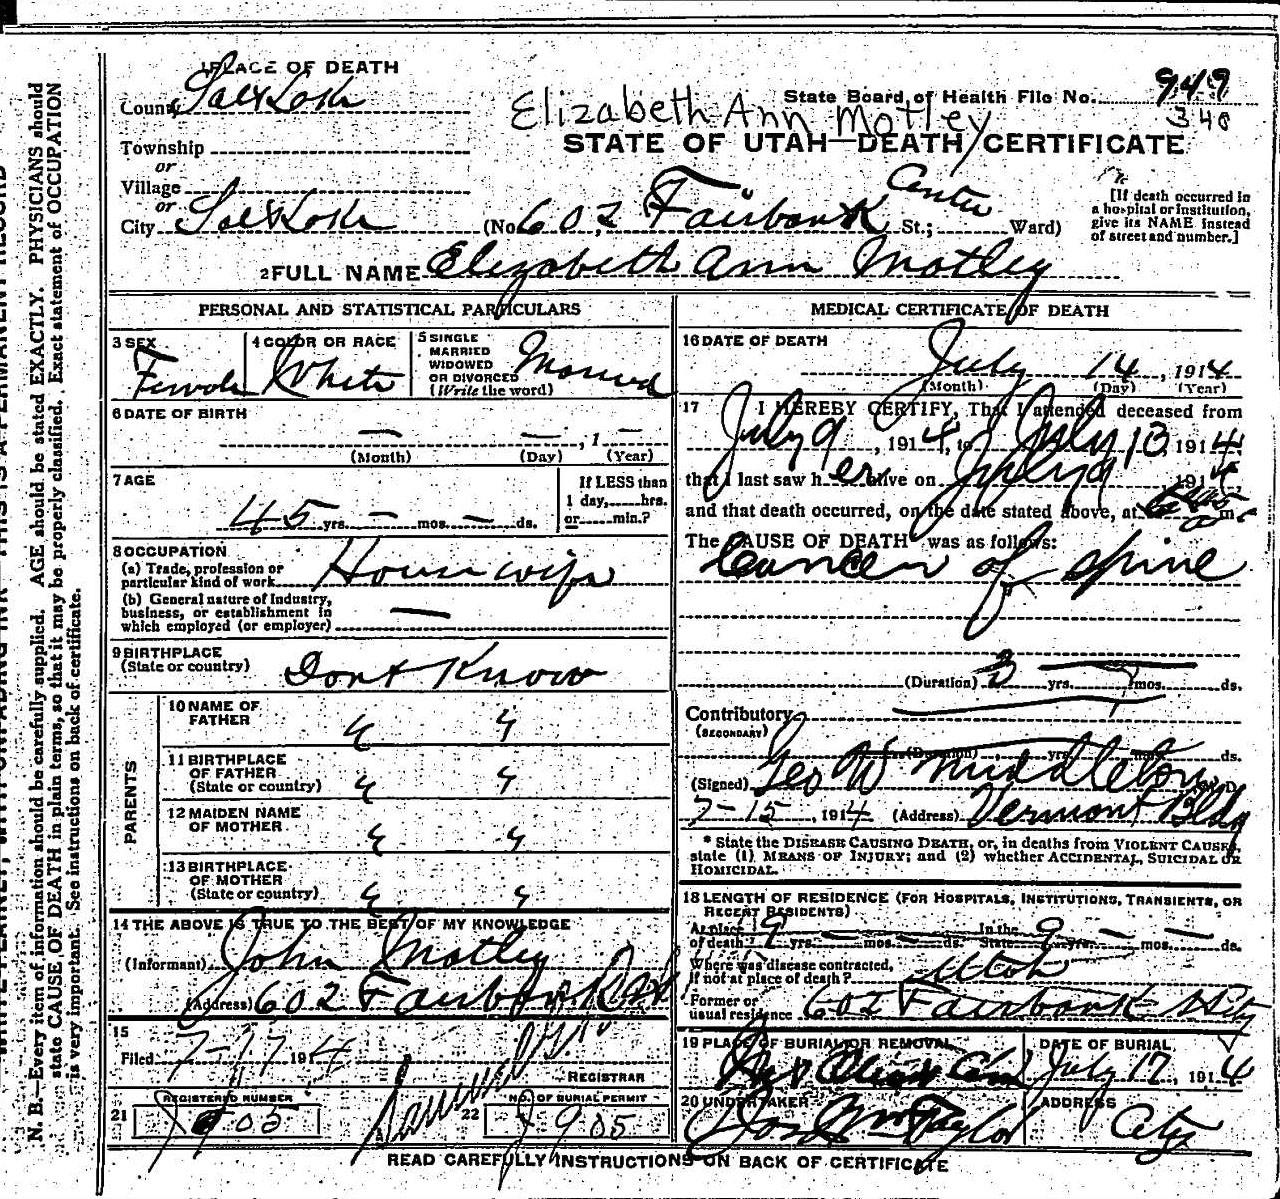 1 PLACE OF DEATH
County Salt Lake
State Board of Health File No. 949
340
Elizabeth Ann Motley
STATE OF UTAH—DEATH CERTIFICATE
Township
or
Village
or
City Salt Lake (No. 602 Fairbank Center St.; Ward)
[If death occurred in a hospital or institution, give its NAME instead of street and number.]
2 FULL NAME Elizabeth Ann Motley
PERSONAL AND STATISTICAL PARTICULARS
3 SEX Female
4 COLOR OR RACE White
5 SINGLE MARRIED WIDOWED OR DIVORCED (Write the word) Married
6 DATE OF BIRTH
— — , 1 —
(Month) (Day) (Year)
7 AGE
45 yrs. — mos. — ds.
If LESS than 1 day, hrs. or min.?
8 OCCUPATION
(a) Trade, profession or particular kind of work Housewife
(b) General nature of Industry, business, or establishment in which employed (or employer) —
9 BIRTHPLACE (State or country) Dont Know
PARENTS
10 NAME OF FATHER " "
11 BIRTHPLACE OF FATHER (State or country) " "
12 MAIDEN NAME OF MOTHER " "
13 BIRTHPLACE OF MOTHER (State or country) " "
14 THE ABOVE IS TRUE TO THE BEST OF MY KNOWLEDGE
(Informant) John Motley
(Address) 602 Fairbank
15
Filed 7-17 1914
REGISTRAR
21 REGISTERED NUMBER
905
22 NO. OF BURIAL PERMIT
905
MEDICAL CERTIFICATE OF DEATH
16 DATE OF DEATH
July 14, 1914
(Month) (Day) (Year)
17 I HEREBY CERTIFY, That I attended deceased from
July 9, 1914, to July 13 1914
that I last saw her alive on July 9 1914
and that death occurred, on the date stated above, at m.
The CAUSE OF DEATH was as follows:
Cancer of spine
(Duration) 3 yrs. mos. ds.
Contributory
(SECONDARY)
(Duration) yrs. ds.
(Signed) Geo W Middleton M. D.
7-15, 1914 (Address) Vermont Bldg
* State the DISEASE CAUSING DEATH, or, in deaths from VIOLENT CAUSES,
state (1) MEANS OF INJURY; and (2) whether ACCIDENTAL, SUICIDAL OR
HOMICIDAL.
18 LENGTH OF RESIDENCE (FOR HOSPITALS, INSTITUTIONS, TRANSIENTS, OR
RECENT RESIDENTS)
At place of death 9 yrs. — mos. — ds. In the State 9 yrs. — mos. — ds.
Where was disease contracted, If not at place of death? Utah
Former or usual residence 602 Fairbank City
19 PLACE OF BURIAL OR REMOVAL
DATE OF BURIAL
July 17, 1914
20 UNDERTAKER
Jos Wm Taylor
ADDRESS
City
READ CAREFULLY INSTRUCTIONS ON BACK OF CERTIFICATE
N. B.—Every item of information should be carefully supplied. AGE should be stated EXACTLY. PHYSICIANS should
state CAUSE OF DEATH in plain terms, so that it may be properly classified. Exact statement of OCCUPATION
is very important. See instructions on back of certificate.